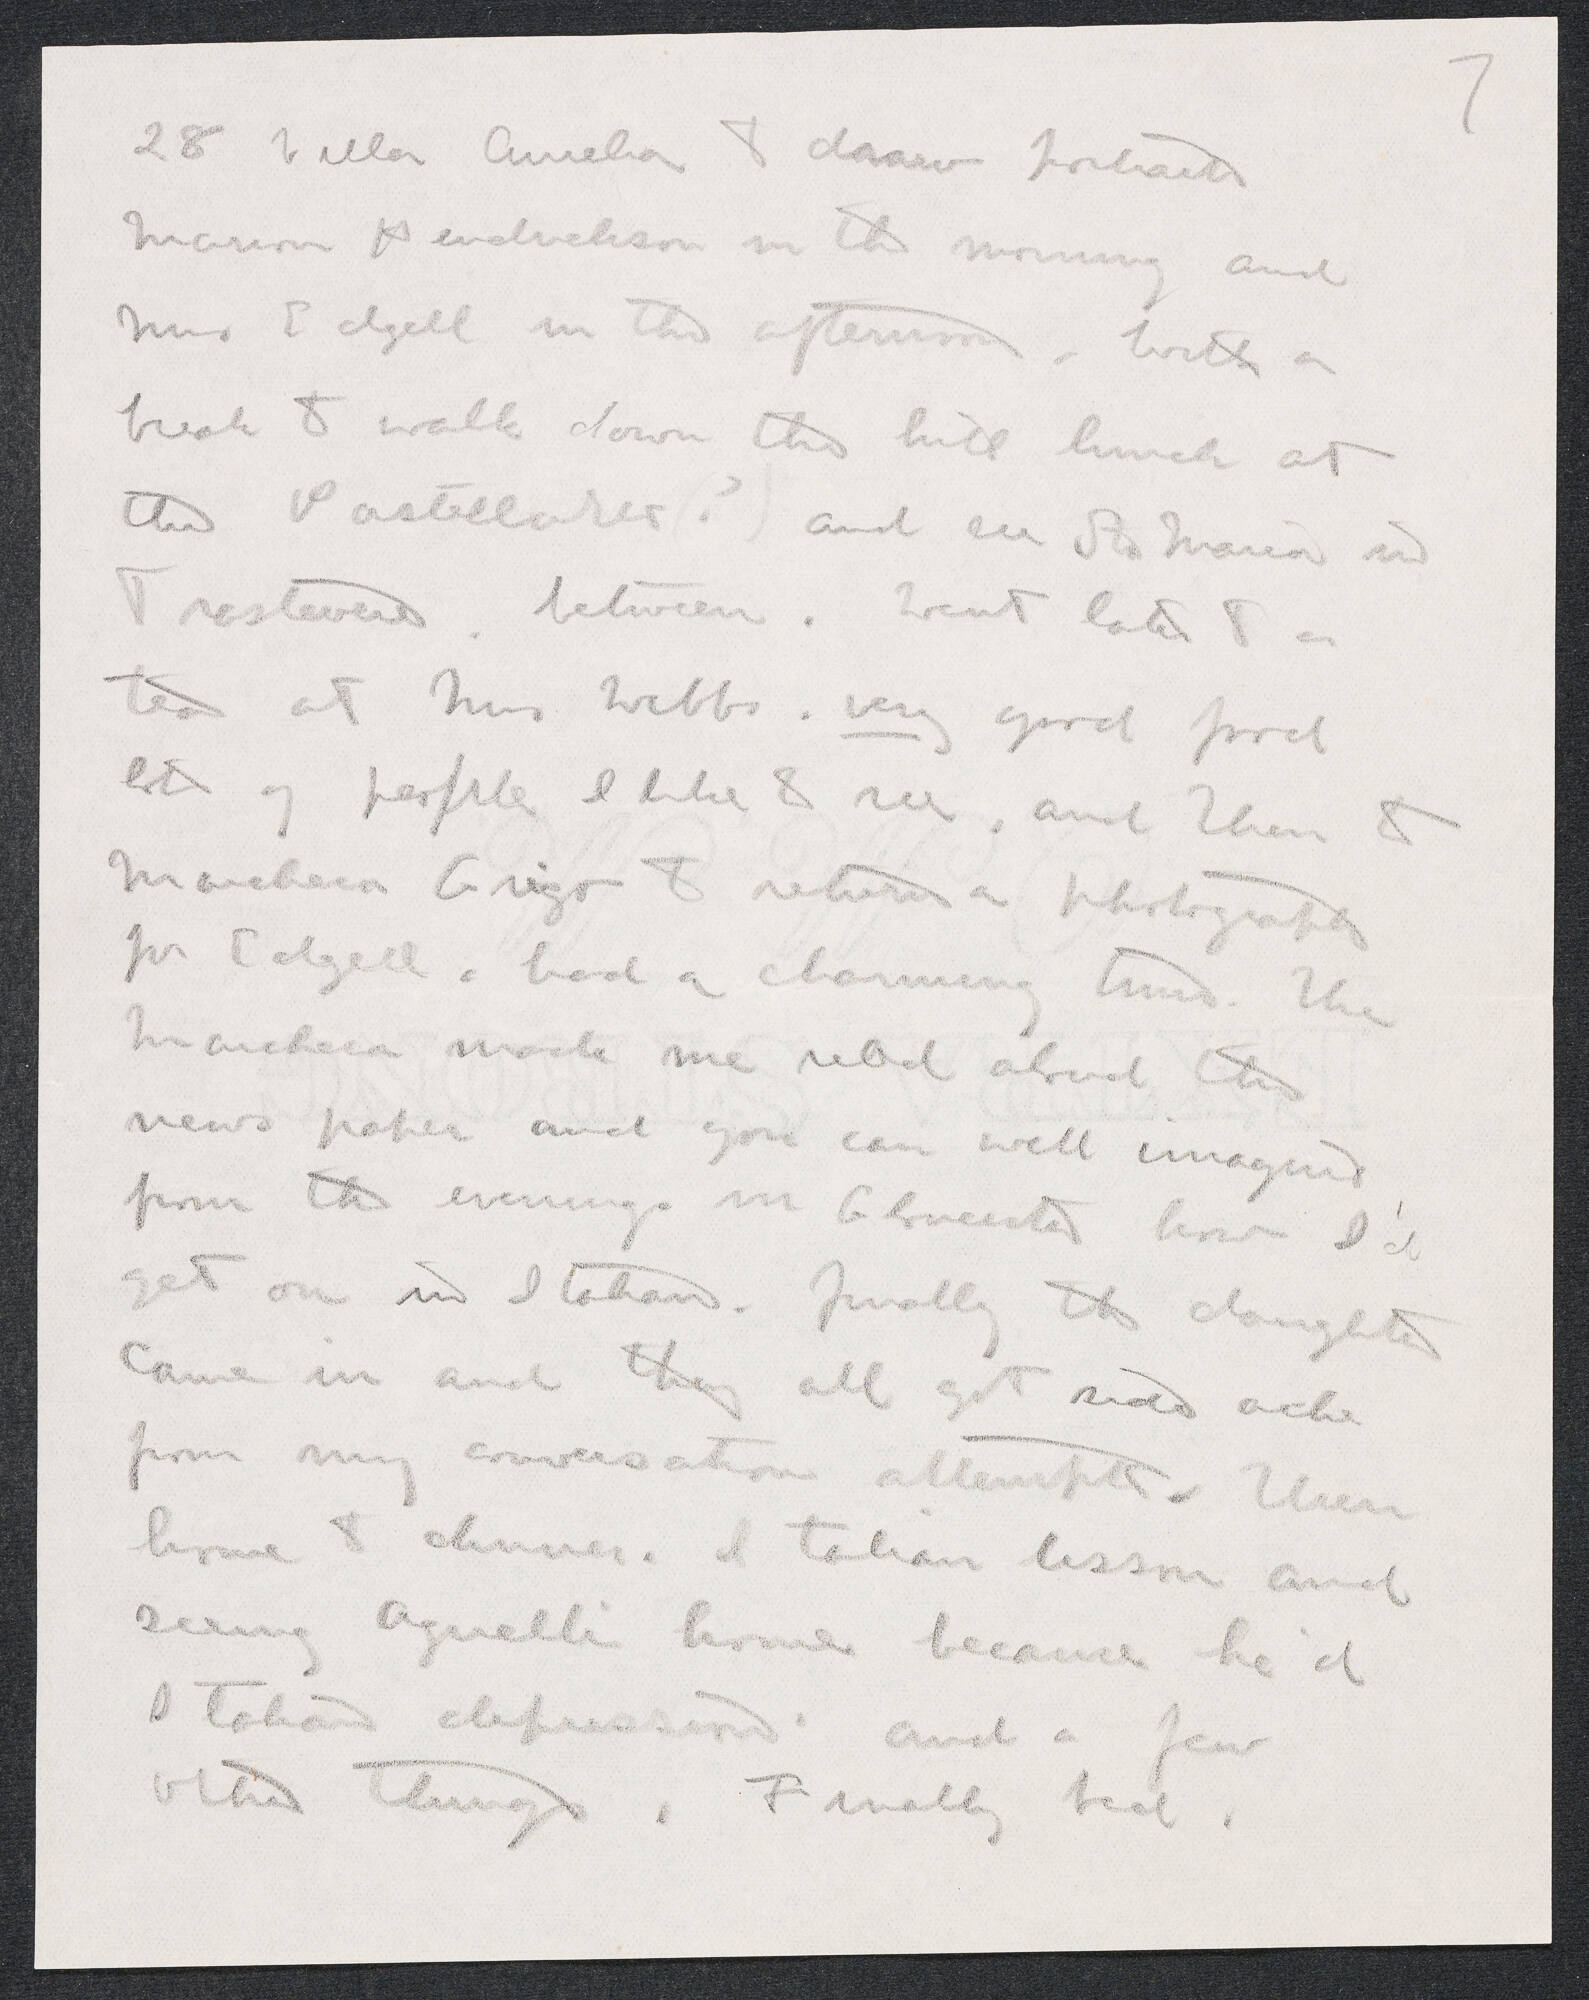 7
28 Villa Aurelia to draw portraits
Marion Hendrickson in the morning and
Mrs Edgell in the afternoon. With a
break to walk down the hill lunch at
the (?) and see Sta Maria in
Trastevere. between. Went later to a
tea at Mrs Webbs. very good food
lots of people I like to see, and then to
Marchesa Origo to return a photograph
for Edgell. had a charming time. The
Marchesa made me read aloud the
news paper and you can well imagine
from the evenings in Gloucester how I'd
get on in Italian. Finally the daughter
came in and they all got side ache
from my conversation attempts. Then
home to dinner. Italian lesson and
seeing Agnelli home because he'd
Italian depression. and a few
other things. Finally bed.